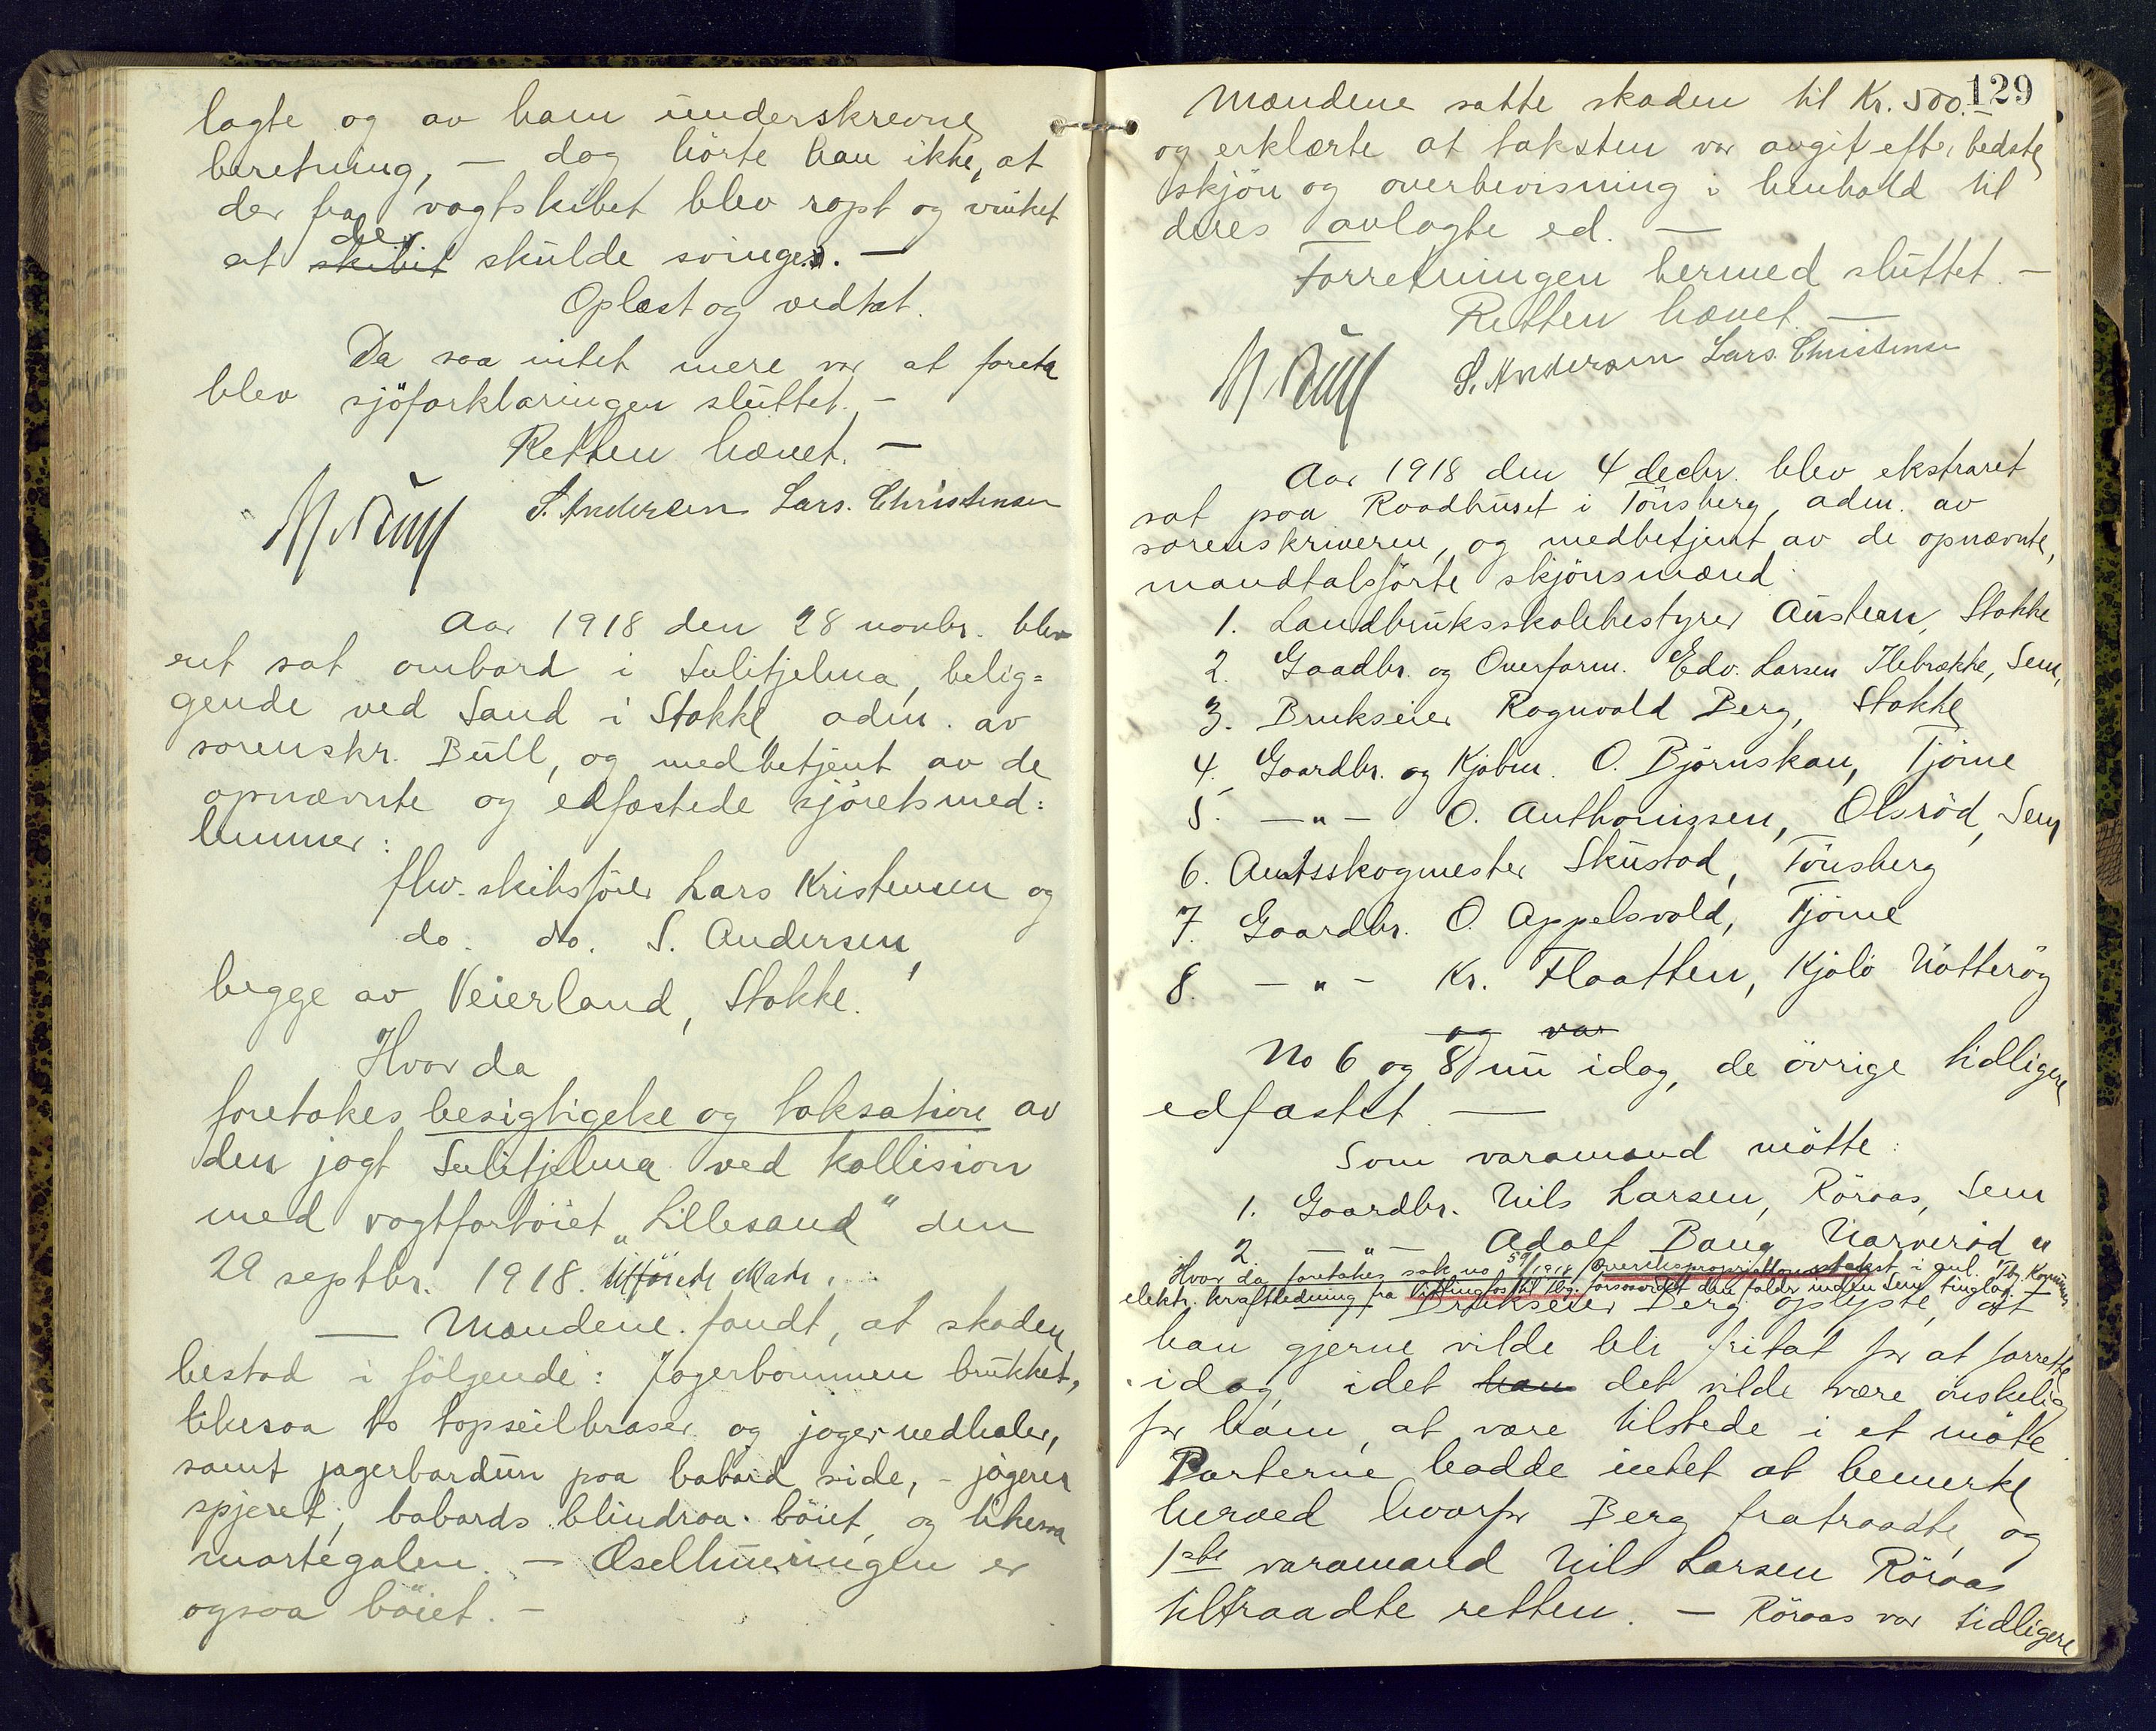 lagte og av ham underskrevne
beretning, — dog hörte han ikke, at
der fra vagtskibet blev ropt og vinket
der
at skibet skulde svinge. —
Oplæst og vedtat.
Da saa intet mere var at foreta
blev sjöforklaringen sluttet. —
Retten hævet. —
S. Andersen Lars. Christensen
Aar 1918 den 28 novbr. blev
ret sat ombord i Sulitjelma, belig=
gende ved Sand i Stokke adm. av
sorenskr. Bull, og medbetjent av de
opnævnte og edfæstede sjöretsmed=
lemmer:
fhv. skibsförer Lars Kristensen og
do. do. S. Andersen,
begge av Veierland, Stokke.
Hvor da
foretakes besigtigelse og taksation av
den jagt Sulitjelma ved kollision
med vagtfartöiet „Lillesand" den
29 septbr. 1918. tilförte skade.
— Mændene fandt, at skaden
bestod i fölgende: Jagerbommen brukket,
likesaa to topseilbraser og jagernedhaler,
samt jagerbardun paa babord side, - jageren
spjeret, babords blindraa böiet, og likesaa
martegalen. — Eselhuringen er
ogsaa böiet. —
129
Mændene satte skaden til Kr. 500.-
og erklærte at taksten var avgit efter bedste
skjön og overbevisning i henhold til
deres avlagte ed. —
Forretningen hermed sluttet. —
Retten hævet. —
S. Andersen Lars. Christensen
Aar 1918 den 4 decbr. blev ekstraret
sat paa Raadhuset i Tönsberg, adm. av
sorenskriveren, og medbetjent av de opnævnte,
mandtalsförte skjönsmænd:
1. Landbruksskolebestyrer Austeen, Stokke
2. Gaadbr. og Overform. Edv. Larsen Ilebrække, Sem,
3. Brukseier Ragnvald Berg, Stokke
4. Gaardbr. og Kjøbm. O. Björnskau, Tjöme
5. —"— O. Anthonissen, Olsröd, Sem
6. Amtsskogmester Skustad, Tönsberg
7. Gaardbr. O. Appelsvold, Tjöme
8. —"— Kr. Flaatten, Kjölö Nötteröy
og var
No 6 og 8 nu idag, de övrige tidligere
edfæstet. —
Som varamænd mötte:
1. Gaardbr. Nils Larsen, Röraas, Sem
2 —"— Adolf Bang Narveröd "
Hvor da foretakes sak no 59/1918 Overekspropriationstakst i anl. Tbg. Kommunes
elektr. kraftledning fra Vittingfos til Tbg. forsaavidt den falder inden Sem tinglag. —
Brukseier Berg oplyste, at
han gjerne vilde bli fritat for at forrette
idag, idet han det vilde være önskelig
for ham, at være tilstede i et möte.
Parterne hadde intet at bemerke
herved hvorfor Berg fratraadte, og
1ste varamand Nils Larsen Röraas
tiltraadte retten. — Röraas var tidligere